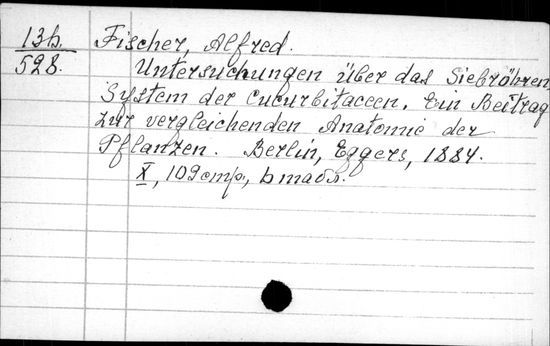 13b. Fischer, Alfred.
528. Untersuchungen über das Siebröhren
System der Cucurbitaceen. Ein Beitrag
zur vergleichenden Anatomie der
Pflanzen. Berlin, Eggers, 1884.
X, 109 стр., 6 табл.